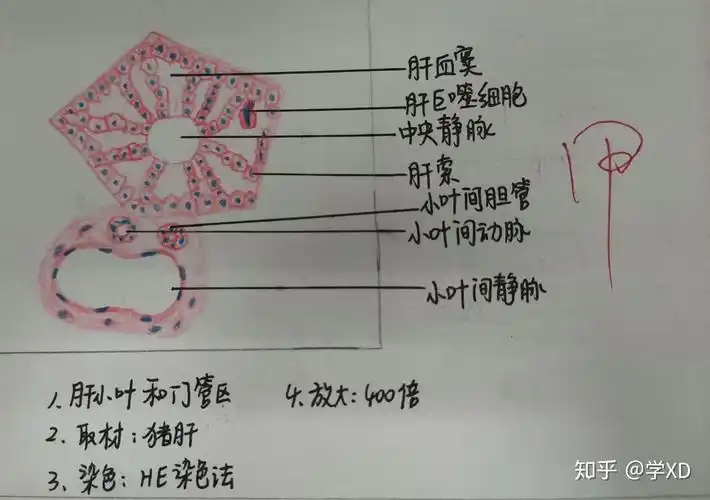 肝血窦
肝巨噬细胞
中央静脉
肝索
小叶间胆管
小叶间动脉
小叶间静脉
甲
1. 肝小叶和门管区
4. 放大：400倍
2. 取材：猪肝
3. 染色：HE染色法
知乎 @学XD